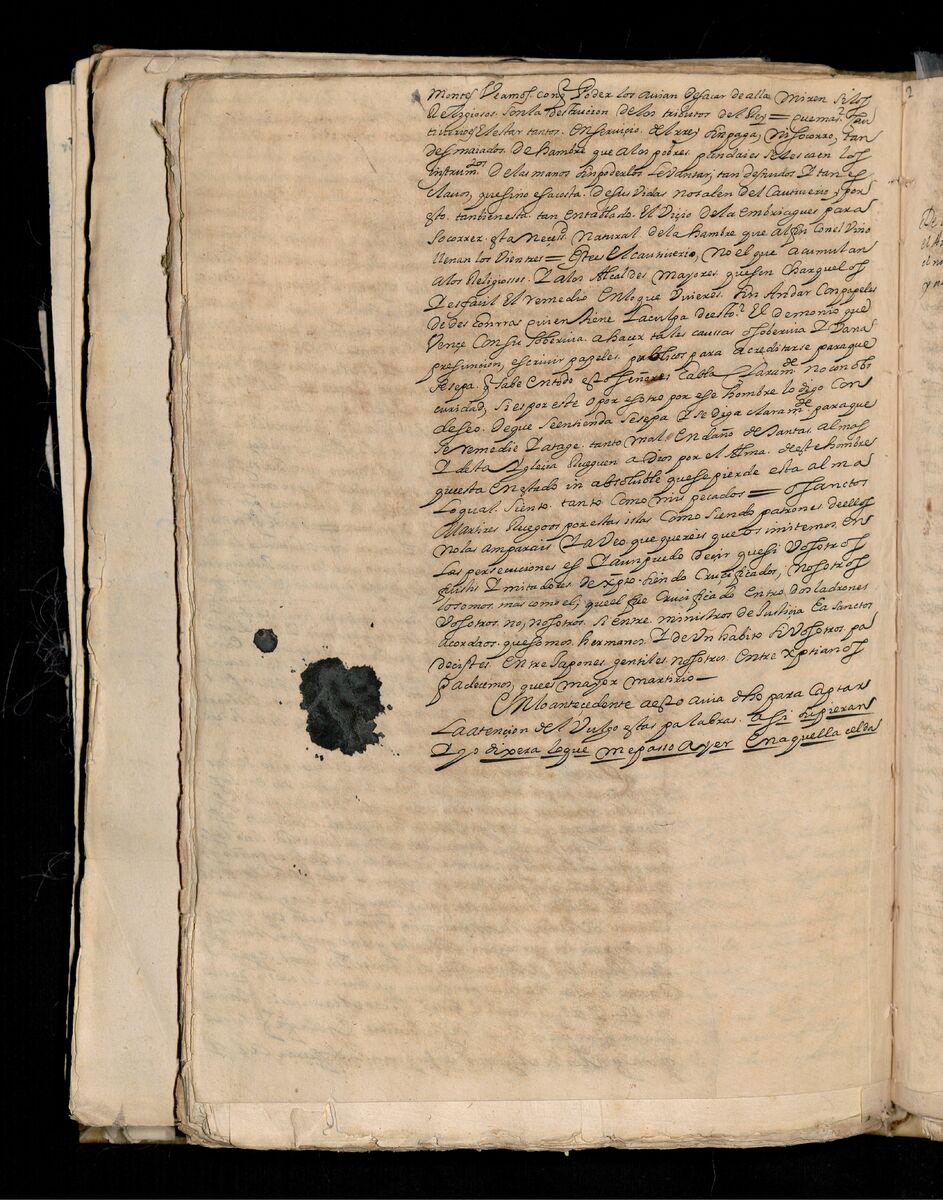 montes Veamos con q̃ Poder los avian de sacar de alla miren si los
Religiosos son la destrucion de los tributos del Rey = que mas
cautiverio q̃ el estar tantos. En servicio. del rrey sin paga, ni socorro, tan
desmaiados. de hambre que a los pobres pandaies se les caen los
instrum.tos De las manos sin poderlos levantar; tan desnudos Y tan es
clavos, que sino es a costa. De sus vidas no salen del Cautiverio, y por
esto. tanbien esta. tan entablado. El Vicio De la embriagues para
socorrer. esta neçesd. natural. de la hambre que al fin con el Vino
llenan los Vientres = Este es el cautiverio, no el que acumulan
a los Religiossos. Y a los Alcaldes mayores que sin charquelos
Y es facil El remedio En lo que Vivieres. sin Andar Con papeles
de descomrras quien tiene La culpa de esto? El Demonio que
Vençe Con su soberivia. a hacer tales caussas o soberivia Y Vana
presuncion, escrivir papeles. publicos para acreditarse para que
se sepa. q̃ sabe en todo esto señores Cabla Claram.de no con obs
curidad, si es por este o por esotro por ese hombre lo digo Con
deseo. De que se entienda se sepa Y se diga claram.de para que
se remedie Y ataxe. tanto mal. En daño de tantas. almas
Y desta Yglesia Rueguen a Dios por el Alma. de este hombre
que esta En estado in absoluble que se pierde esta alma
lo qual. siento. tanto como mis pecados = o sanctos
Martires Ruegoos por estas islas Como siendo patrones de ellas
no las amparais Ya Veo que quereis que os imitemos. En
las persecuciones es Y aun puedo decir que si Vosotros
fuistis Ymitadores de xp̃to. siendo Crucificados, nosotros
lo somos. mas como el; que el fue Crucificado Entre. dos ladrones
Vosotros. no, nosotros. si Entre. ministros de Justicia Ea sanctos
Acordaos. que somos. hermanos. Y de Un habito si Vosotros. pa
decistes. Entre Japones gentiles nosotros. Entre xptianos
padecemos, que es mayor martirio—
En lo antecedente a esto avia dho para captar
La atencion del Vulgo estas palabras. a si supieran
Y yo dixera lo que me passo ayer En aquella celda
2